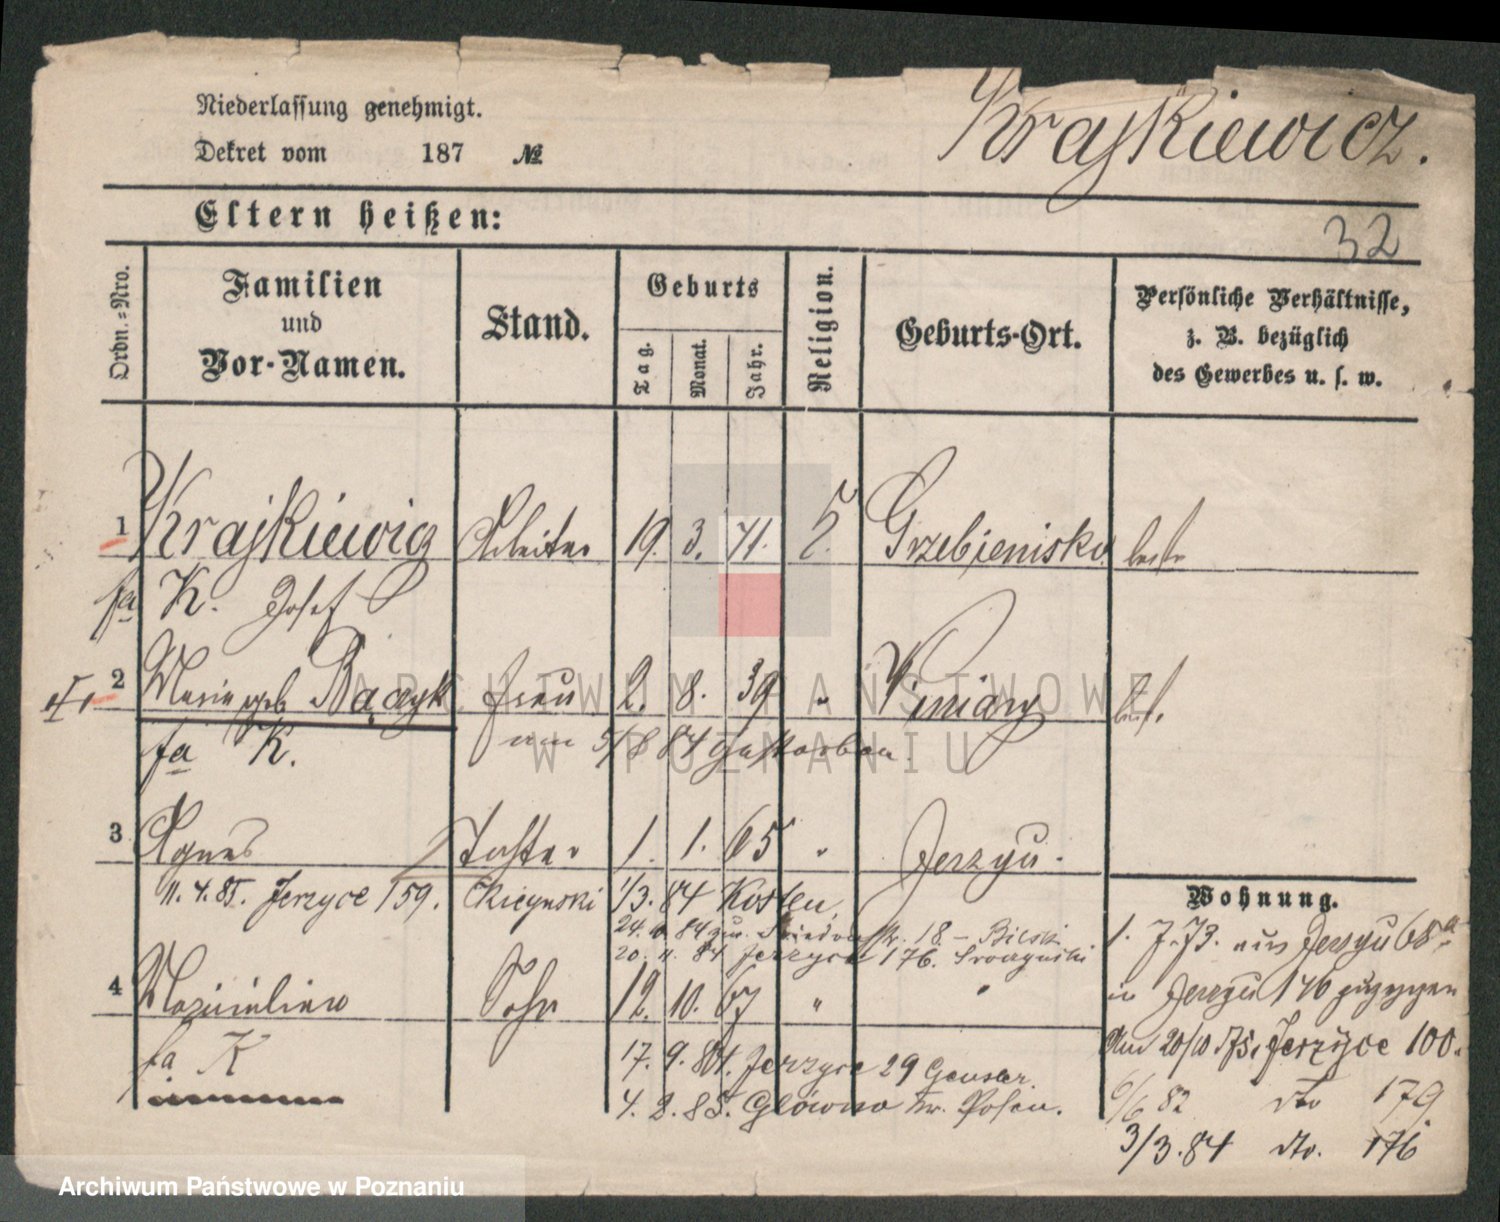 Niederlassung genehmigt.
Dekret vom 187 №
Krajkiewicz.
Eltern heißen:
32
Ordn.=Nro.
Familien
und
Vor-Namen.
Stand.
Geburts
Tag.
Monat.
Jahr.
Religion.
Geburts-Ort.
Persönliche Verhältnisse,
z. B. bezüglich
des Gewerbes u. s. w.
1 Krajkiewicz Arbeiter 19. 3. 41. Grzebienisko
fa K. Josef
2 Marie geb Bączyk Frau 2. 8. 39 " Winiary
fa K. am 5/8 84 gestorben.
3 Agnes Tochter 1. 1. 65 " Jerzyce.
11. 4. 85. Jerzyce 159. 1/3. 84 Kosten,
24. 84 18. – Bilski
20. 11. 84 Jerzyce 176.
4 Maximilian Sohn 12. 10. 67 " "
fa K
17. 9. 84. Jerzyce 29
4. 2. 85. Główno Kr. Posen.
Wohnung.
1. 7. 73. aus Jerzyce 68a
in Jerzyce 146 gezogen
Am 20/10 75. Jerzyce 100.
6/6 82 dto 179
3/3. 84 dto. 176
ARCHIWUM PAŃSTWOWE
W POZNANIU
Archiwum Państwowe w Poznaniu